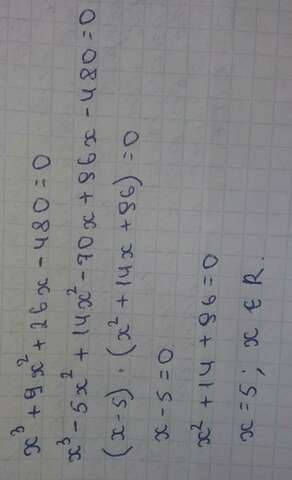 x³ + 9x² + 26x - 480 = 0
x³ - 5x² + 14x² - 70x + 96x - 480 = 0
(x - 5) · (x² + 14x + 96) = 0
x - 5 = 0
x² + 14 + 96 = 0
x = 5; x ∈ R.